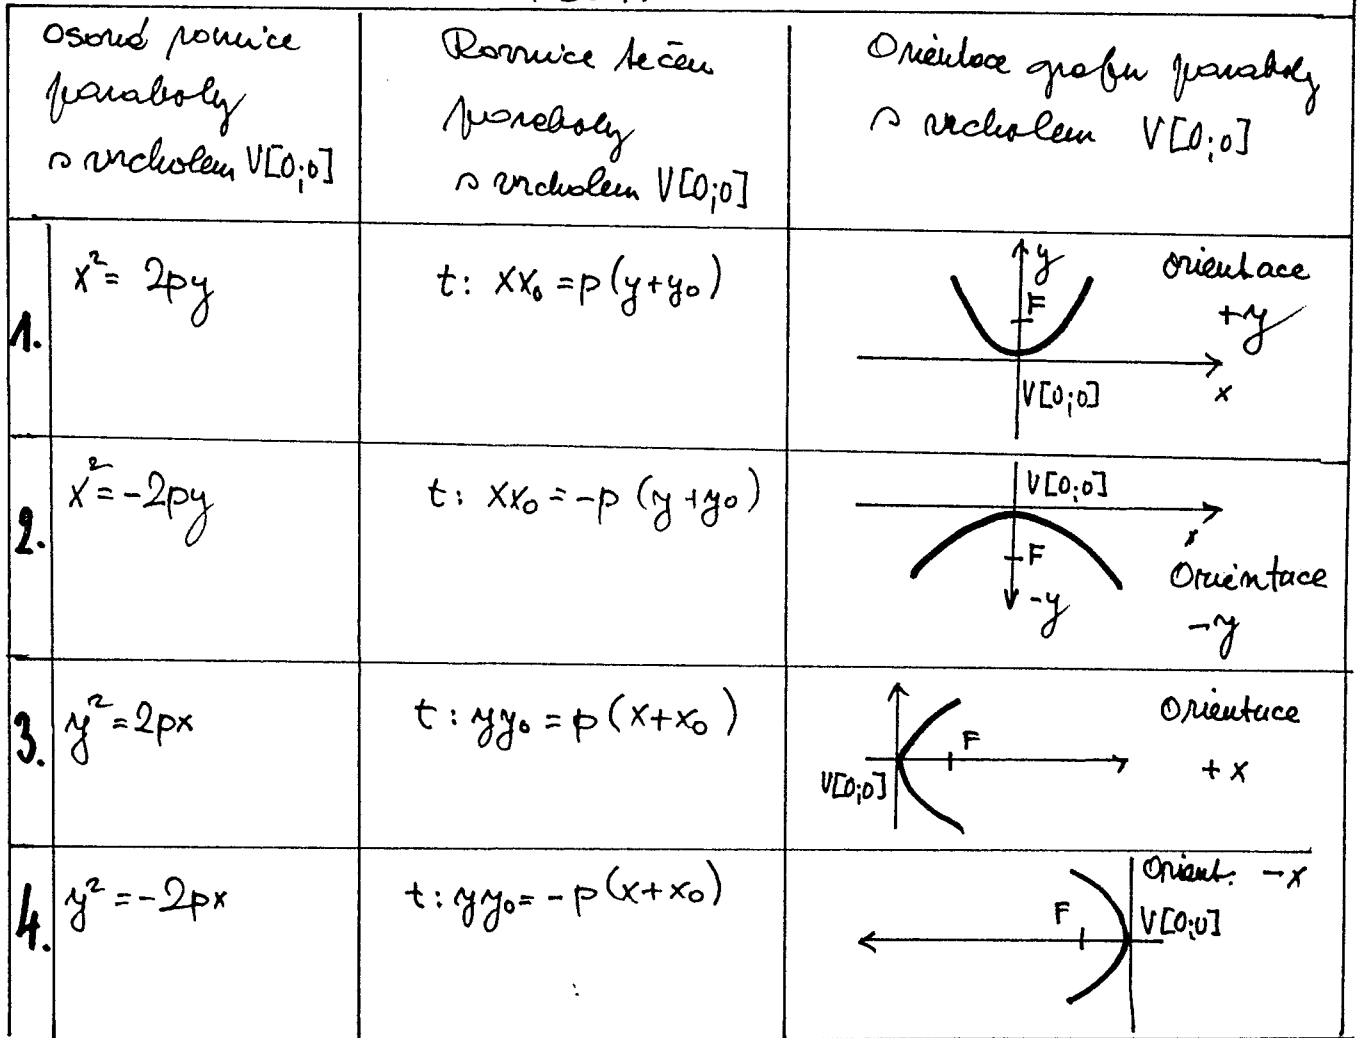 Osová rovnice
paraboly
s vrcholem V[0;0]
Rovnice tečen
paraboly
s vrcholem V[0;0]
Orientace grafu paraboly
s vrcholem V[0;0]
1.
x² = 2py
t: xx₀ = p(y+y₀)
y
F
x
V[0;0]
orientace
+y
2.
x² = -2py
t: xx₀ = -p (y+y₀)
V[0;0]
x
F
-y
Orientace
-y
3.
y² = 2px
t: yy₀ = p(x+x₀)
F
V[0;0]
Orientace
+ x
4.
y² = -2px
t: yy₀ = -p(x+x₀)
Orient. -x
F
V[0;0]